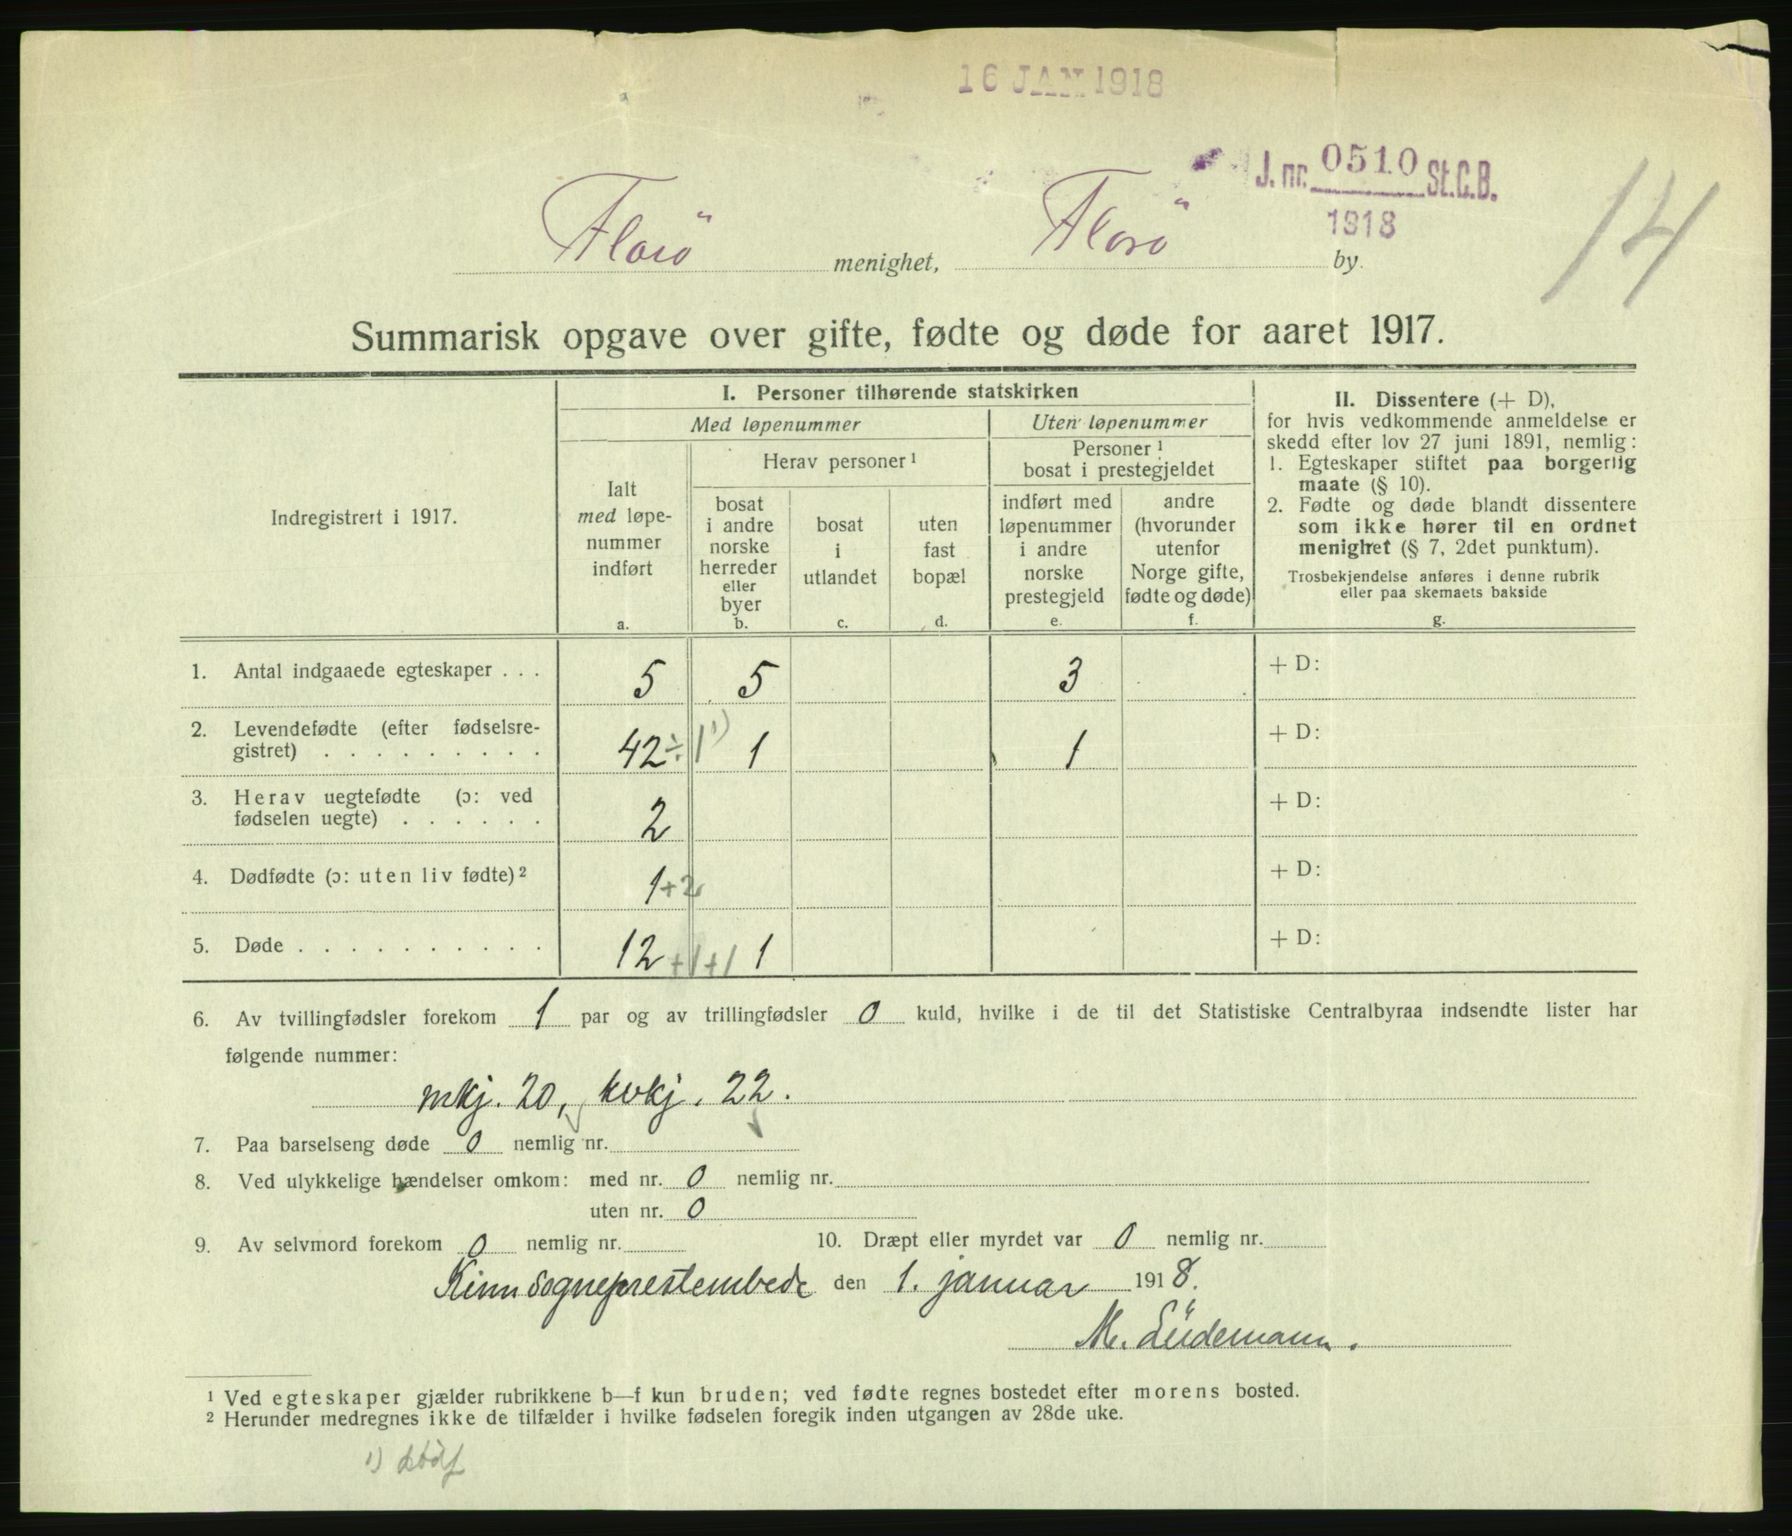 16 JAN 1918
J. nr. 0510 St.C.B.
1918
14
Florö menighet, Florö by.
Summarisk opgave over gifte, fødte og døde for aaret 1917.
Indregistrert i 1917.
I. Personer tilhørende statskirken
Med løpenummer
Uten løpenummer
Ialt med løpe-nummer indført
a.
Herav personer¹
bosat i andre norske herreder eller byer
b.
bosat i utlandet
c.
uten fast bopæl
d.
Personer¹ bosat i prestegjeldet
indført med løpenummer i andre norske prestegjeld
e.
andre (hvorunder utenfor Norge gifte, fødte og døde)
f.
II. Dissentere (+ D),
for hvis vedkommende anmeldelse er
skedd efter lov 27 juni 1891, nemlig:
1. Egteskaper stiftet paa borgerlig
maate (§ 10).
2. Fødte og døde blandt dissentere
som ikke hører til en ordnet
menighet (§ 7, 2det punktum).
Trosbekjendelse anføres i denne rubrik
eller paa skemaets bakside
g.
1. Antal indgaaede egteskaper . . . 5 5 3 + D:
2. Levendefødte (efter fødselsre-
gistret) . . . . . . . . . 42 ÷ 1 ¹) 1 1 + D:
3. Herav uegtefødte (ɔ: ved
fødselen uegte) . . . . . . 2 + D:
4. Dødfødte (ɔ: uten liv fødte)² 1 +2 + D:
5. Døde . . . . . . . . . . 12 +1+1 1 + D:
6. Av tvillingfødsler forekom 1 par og av trillingfødsler 0 kuld, hvilke i de til det Statistiske Centralbyraa indsendte lister har
følgende nummer:
mkj. 20, kvkj. 22.
7. Paa barselseng døde 0 nemlig nr.
8. Ved ulykkelige hændelser omkom: med nr. 0 nemlig nr.
uten nr. 0
9. Av selvmord forekom 0 nemlig nr. 10. Dræpt eller myrdet var 0 nemlig nr.
Kinn sogneprestembede den 1. januar 1918.
M. Lüdemann.
¹ Ved egteskaper gjælder rubrikkene b—f kun bruden; ved fødte regnes bostedet efter morens bosted.
² Herunder medregnes ikke de tilfælder i hvilke fødselen foregik inden utgangen av 28de uke.
¹)